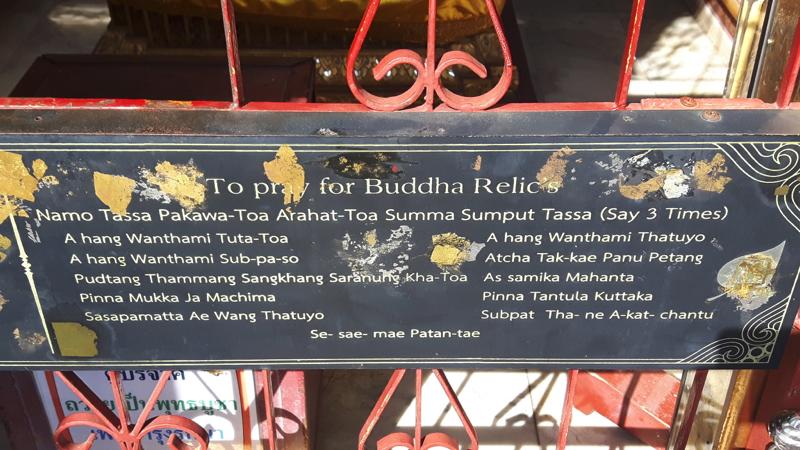 To pray for Buddha Relic's
Namo Tassa Pakawa-Toa Arahat-Toa Summa Sumput Tassa (Say 3 Times)
A hang Wanthami Tuta-Toa
A hang Wanthami Sub-pa-so
Pudtang Thammang Sangkhang Saranung Kha-Toa
Pinna Mukka Ja Machima
Sasapamatta Ae Wang Thatuyo
A hang Wanthami Thatuyo
Atcha Tak-kae Panu Petang
As samika Mahanta
Pinna Tantula Kuttaka
Subpat Tha- ne A-kat- chantu
Se- sae- mae Patan-tae